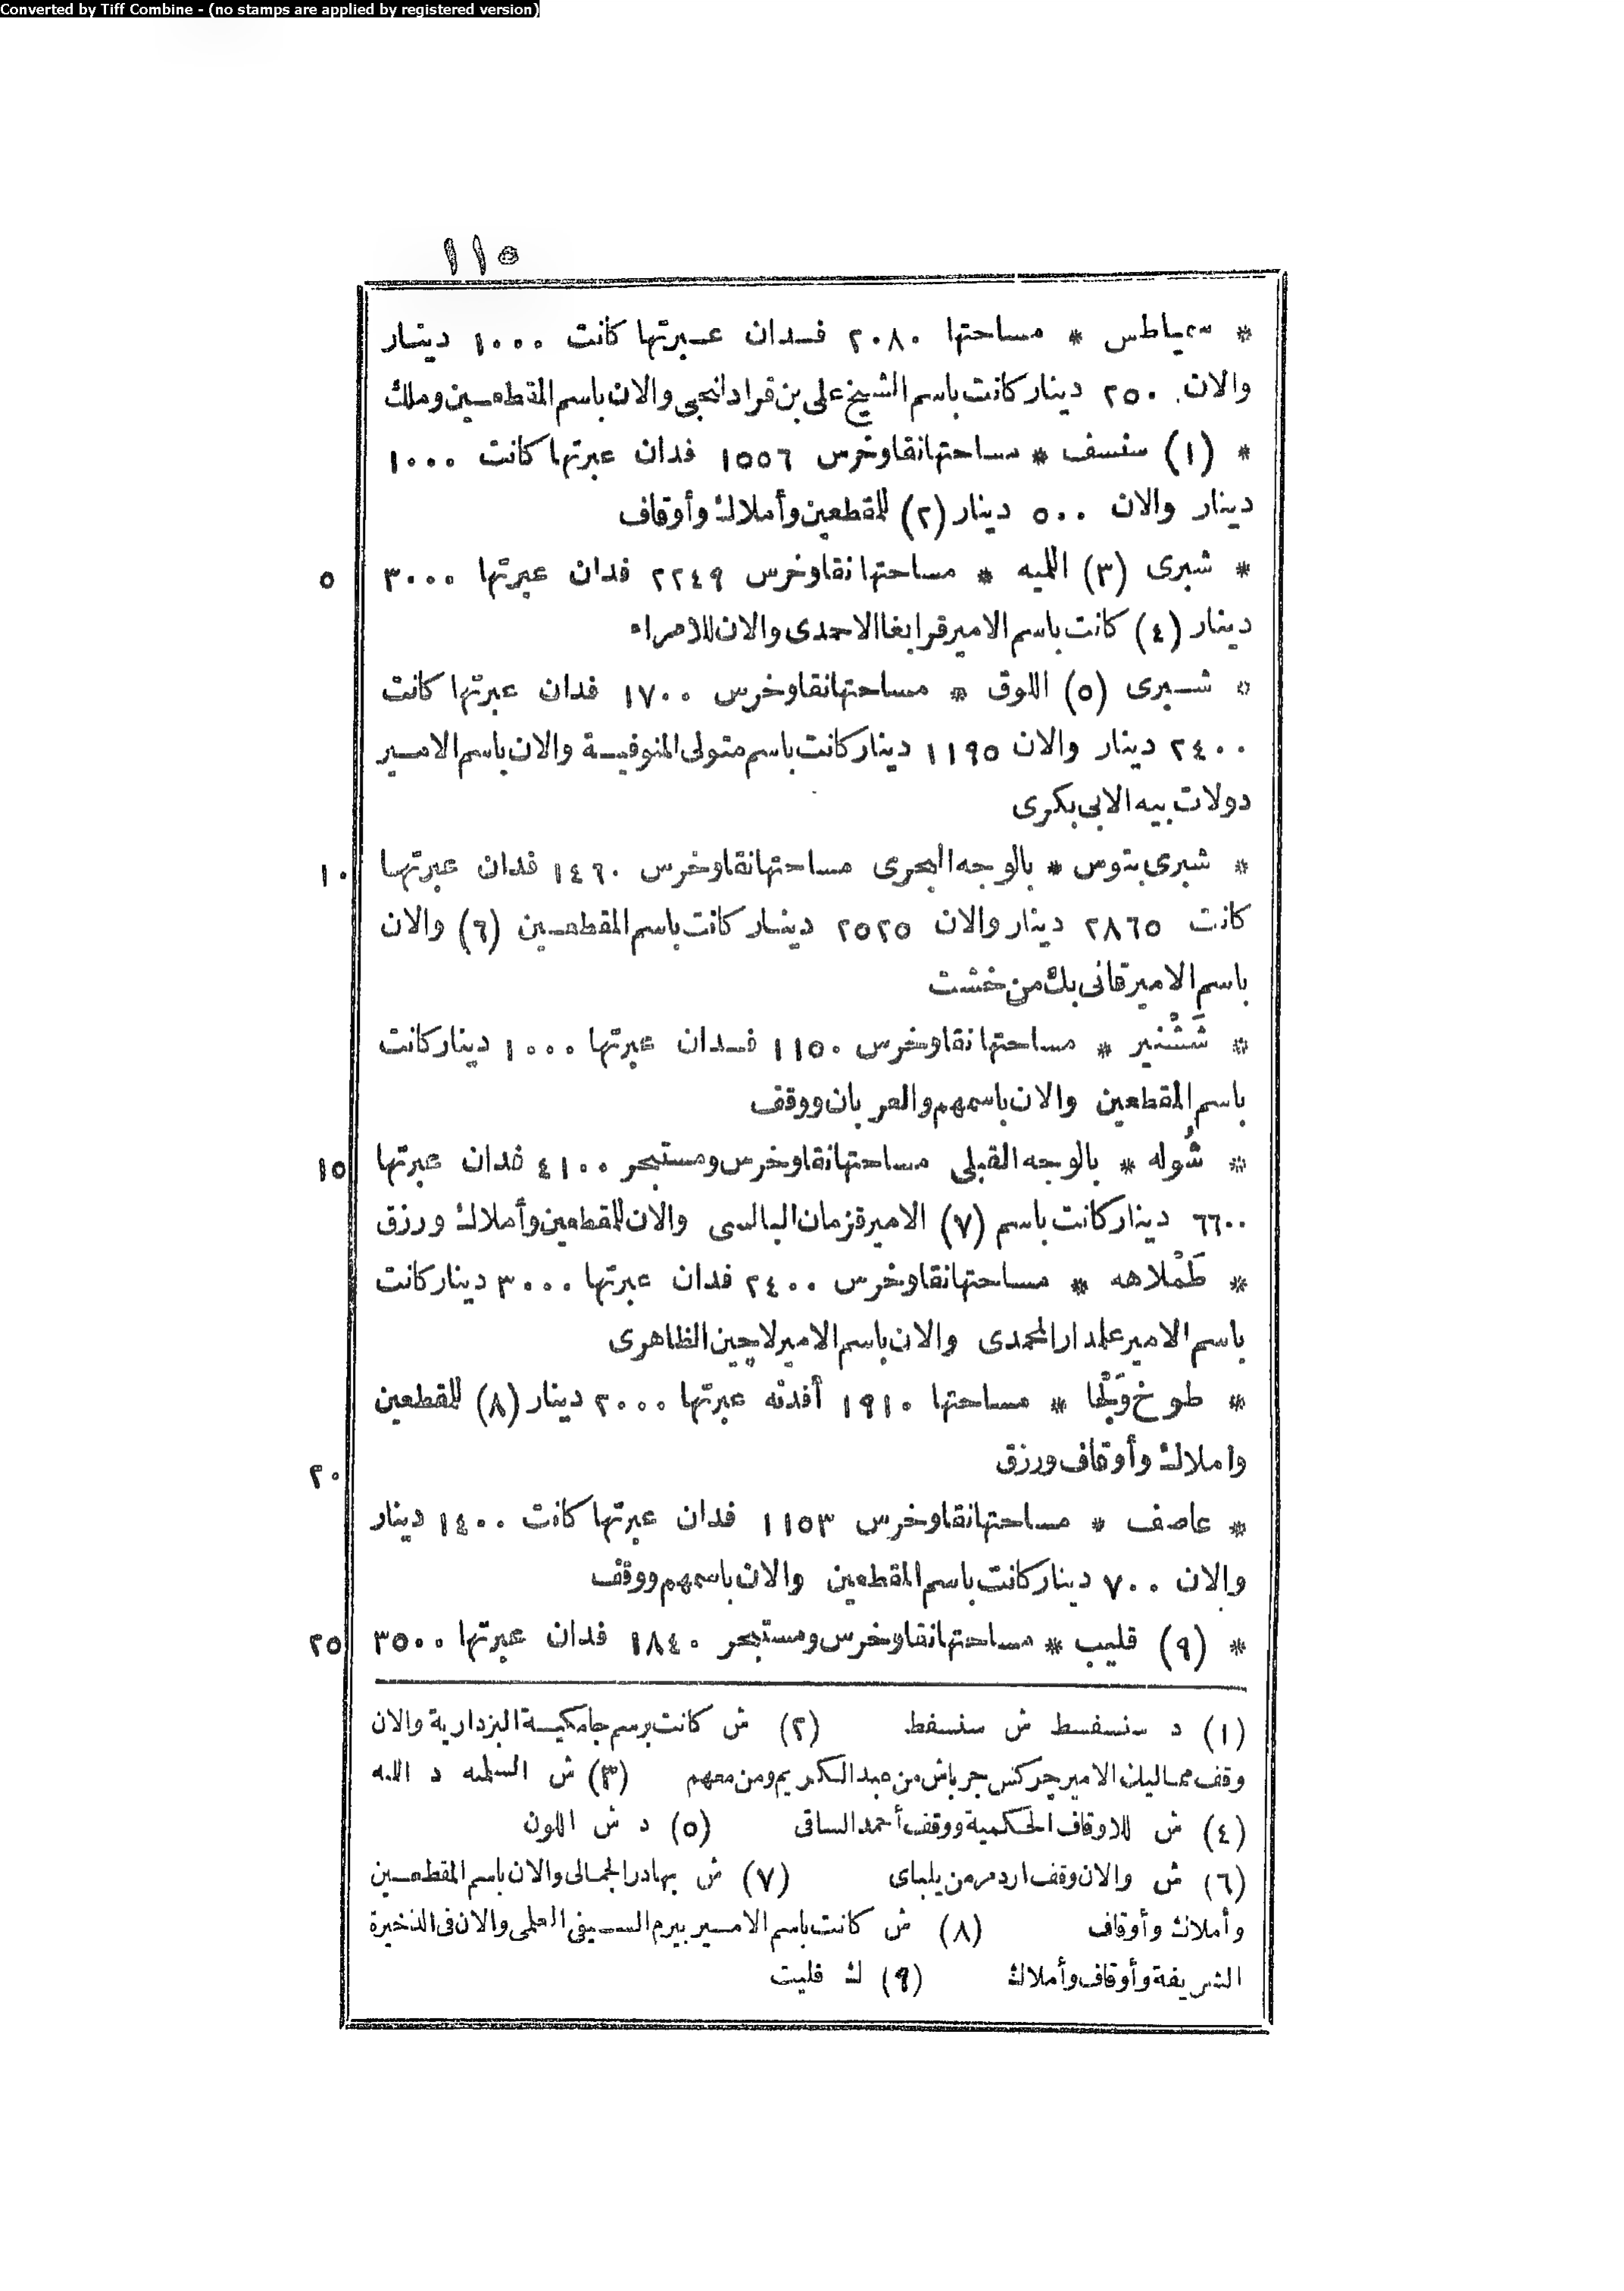 Converted by Tiff Combine - (no stamps are applied by registered version)
١١٥
* سمياطس * مساحتها ٢٠٨٠ فدان عبرتها كانت ١٠٠٠ دينار
والان ٢٥٠ دينار كانت باسم الشيخ على بن قراد انجى والان باسم المقطعين وملك
* (١) سنسف * مساحتها نقا وخرس ١٥٥٦ فدان عبرتها كانت ١٠٠٠
دينار والان ٥٠٠ دينار (٢) للمقطعين وأملاك وأوقاف
٥ * شبرى (٣) اللميه * مساحتها نقا وخرس ٢٢٤٩ فدان عبرتها ٣٠٠٠
دينار (٤) كانت باسم الامير قرابغا الاحمدى والان للامراء
* شبرى (٥) اللوق * مساحتها نقا وخرس ١٧٠٠ فدان عبرتها كانت
٢٤٠٠ دينار والان ١١٩٥ دينار كانت باسم متولى المنوفية والان باسم الامير
دولات بيه الابى بكرى
١٠ * شبرى بتوس * بالوجه البحرى مساحتها نقا وخرس ١٤٦٠ فدان عبرتها
كانت ٢٨٦٥ دينار والان ٢٥٢٥ دينار كانت باسم المقطعين (٦) والان
باسم الامير قانى بك من خشت
* شَشْنير * مساحتها نقا وخرس ١١٥٠ فدان عبرتها ١٠٠٠ دينار كانت
باسم المقطعين والان باسمهم والعربان ووقف
١٥ * شُوله * بالوجه القبلى مساحتها نقا وخرس ومستبحر ٤١٠٠ فدان عبرتها
٦٦٠٠ دينار كانت باسم (٧) الامير قزمان البالسى والان للمقطعين وأملاك ورزق
* طَمْلاهه * مساحتها نقا وخرس ٢٤٠٠ فدان عبرتها ٣٠٠٠ دينار كانت
باسم الامير علمدار المحمدى والان باسم الامير لاجين الظاهرى
* طوخ وَلِّها * مساحتها ١٩١٠ أفدنه عبرتها ٢٠٠٠ دينار (٨) للمقطعين
٢٠ واملاك وأوقاف ورزق
* عاصف * مساحتها نقا وخرس ١١٥٣ فدان عبرتها كانت ١٤٠٠ دينار
والان ٧٠٠ دينار كانت باسم المقطعين والان باسمهم ووقف
٢٥ * (٩) قليب * مساحتها نقا وخرس ومستبحر ١٨٤٠ فدان عبرتها ٣٥٠٠
(١) د سنسفسط ش سنسفط (٢) ش كانت برسم جامكية البزدارية والان
وقف مماليك الامير جركس جرباش من عبد الكريم ومن معهم (٣) ش السلميه د الله
(٤) ش للاوقاف الحكمية ووقف أحمد الساقى (٥) د ش اللون
(٦) ش والان وقف اردمر من يلباى (٧) ش بهادر الجمالى والان باسم المقطعين
وأملاك وأوقاف (٨) ش كانت باسم الامير بيرم السيفى العلمى والان فى الذخيرة
الشريفة وأوقاف وأملاك (٩) ك قليت